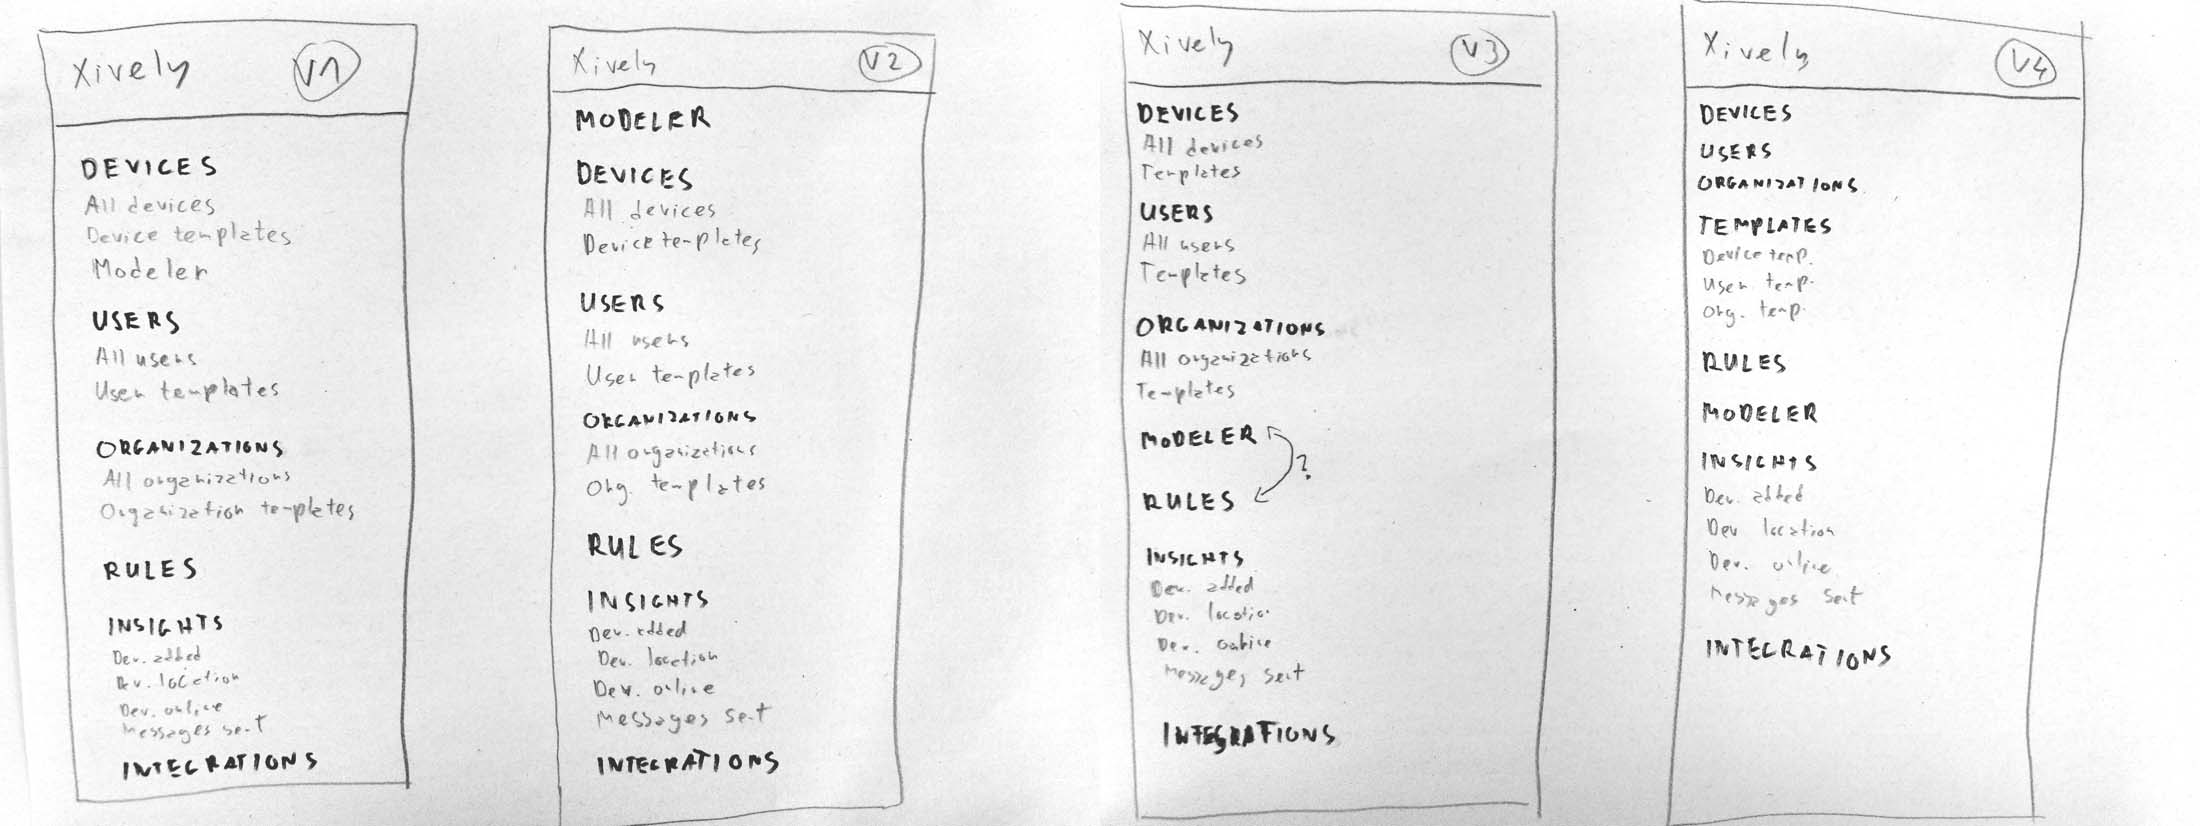 Xively V1
DEVICES
All devices
Device templates
Modeler
USERS
All users
User templates
ORGANIZATIONS
All organizations
Organization templates
RULES
INSIGHTS
Dev. added
Dev. location
Dev. online
Messages sent
INTEGRATIONS
Xively V2
MODELER
DEVICES
All devices
Device templates
USERS
All users
User templates
ORGANIZATIONS
All organizations
Org. templates
RULES
INSIGHTS
Dev. added
Dev. location
Dev. online
Messages sent
INTEGRATIONS
Xively V3
DEVICES
All devices
Templates
USERS
All users
Templates
ORGANIZATIONS
All organizations
Templates
MODELER
?
RULES
INSIGHTS
Dev. added
Dev. location
Dev. online
Messages sent
INTEGRATIONS
Xively V4
DEVICES
USERS
ORGANIZATIONS
TEMPLATES
Device temp.
User temp.
Org. temp.
RULES
MODELER
INSIGHTS
Dev. added
Dev location
Dev. online
Messages sent
INTEGRATIONS